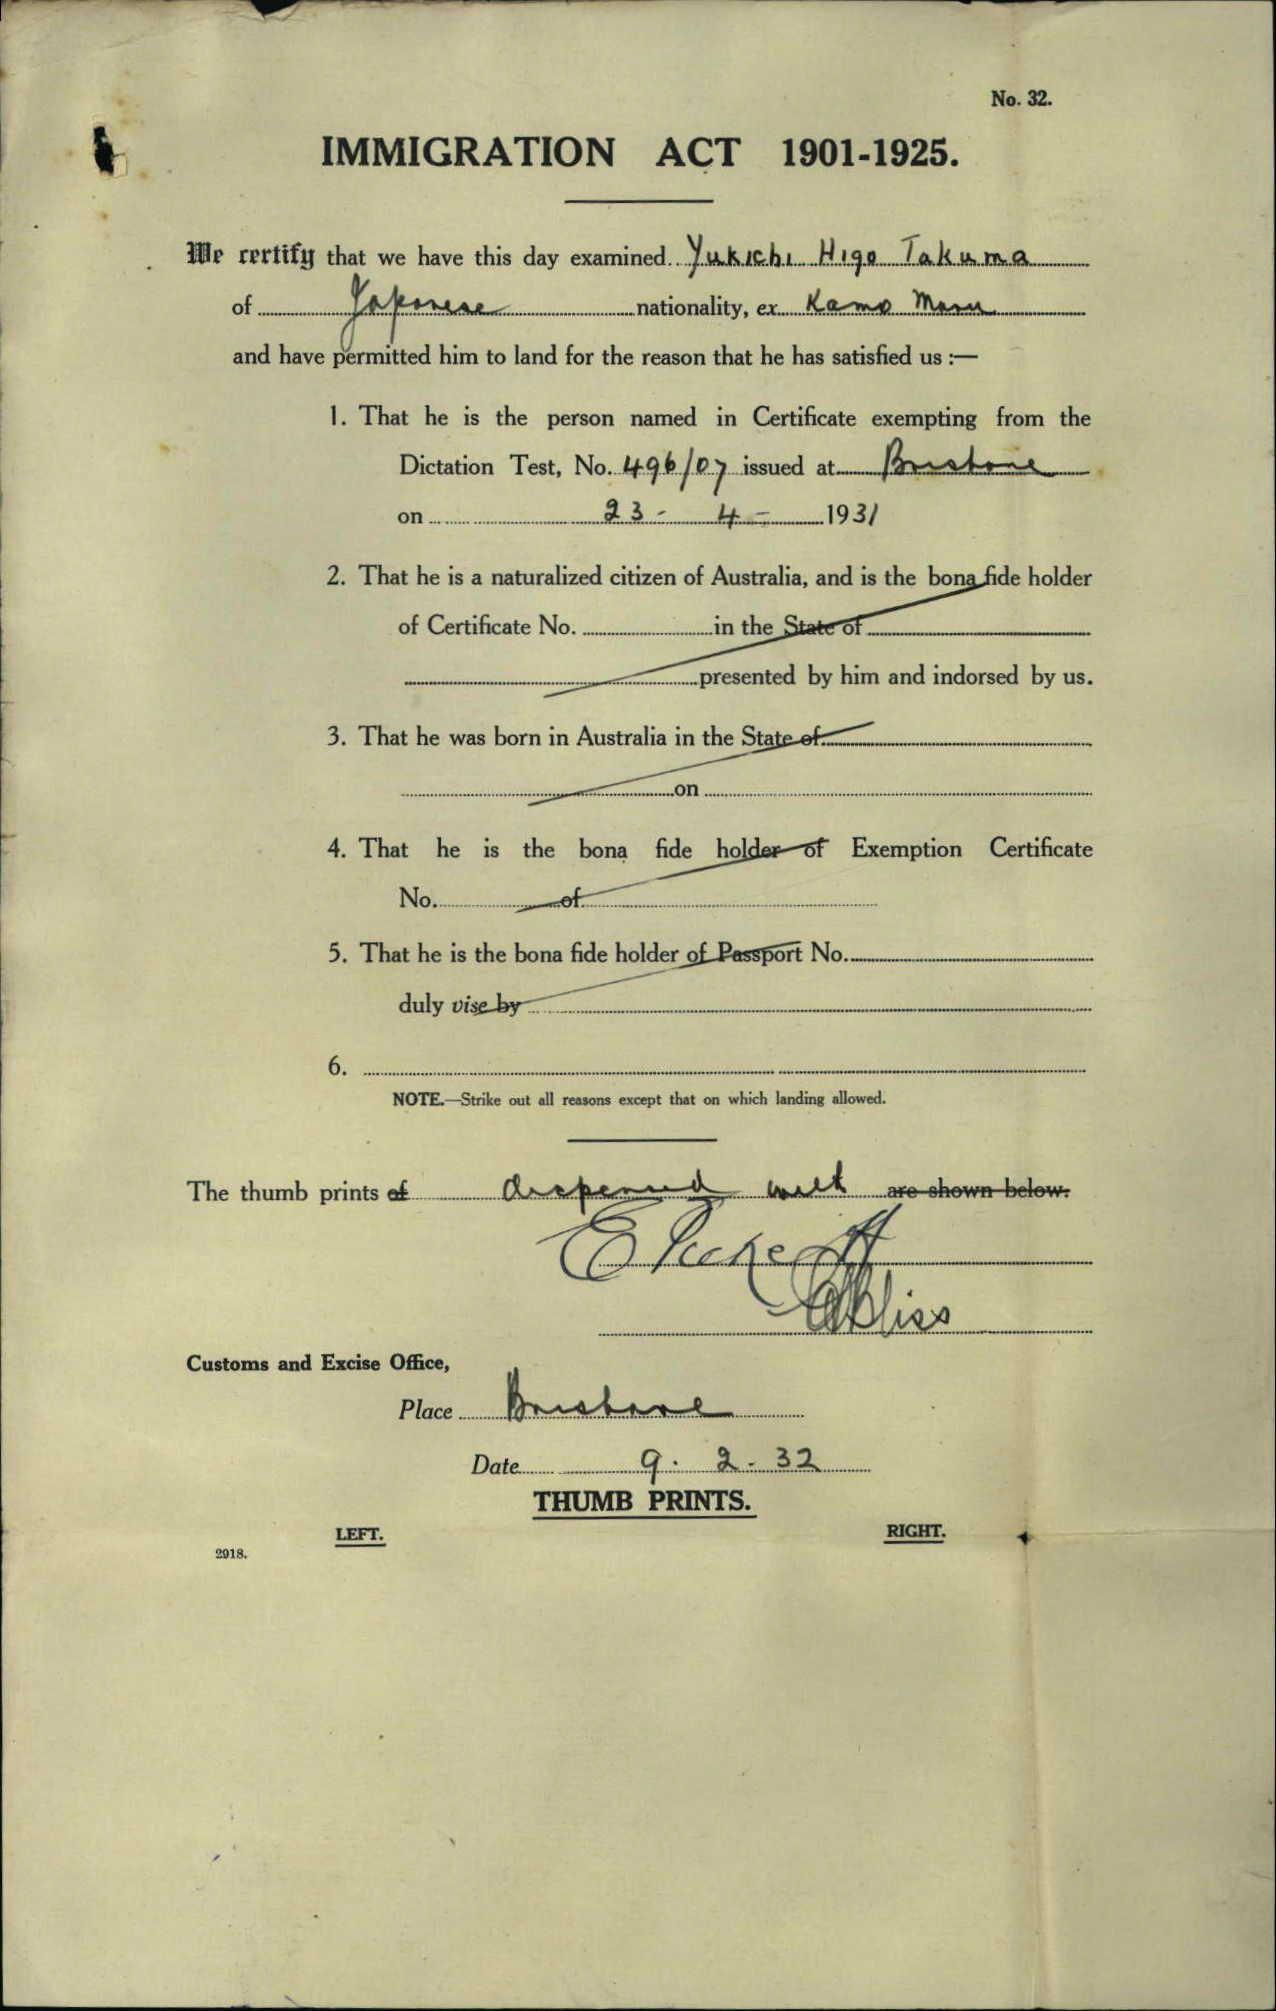 No. 32.
IMMIGRATION ACT 1901-1925.
We certify that we have this day examined Yukichi Higo Takuma
of Japanese nationality, ex Kamo Maru
and have permitted him to land for the reason that he has satisfied us :—
1. That he is the person named in Certificate exempting from the
Dictation Test, No. 496/07 issued at Brisbane
on 23 - 4 - 1931
2. That he is a naturalized citizen of Australia, and is the bona fide holder
of Certificate No. in the State of
presented by him and indorsed by us.
3. That he was born in Australia in the State of
on
4. That he is the bona fide holder of Exemption Certificate
No. of
5. That he is the bona fide holder of Passport No.
duly vise by
6.
NOTE.—Strike out all reasons except that on which landing allowed.
The thumb prints of dispensed with are shown below.
Bliss
Customs and Excise Office,
Place Brisbane
Date 9. 2. 32
THUMB PRINTS.
LEFT. RIGHT.
2918.